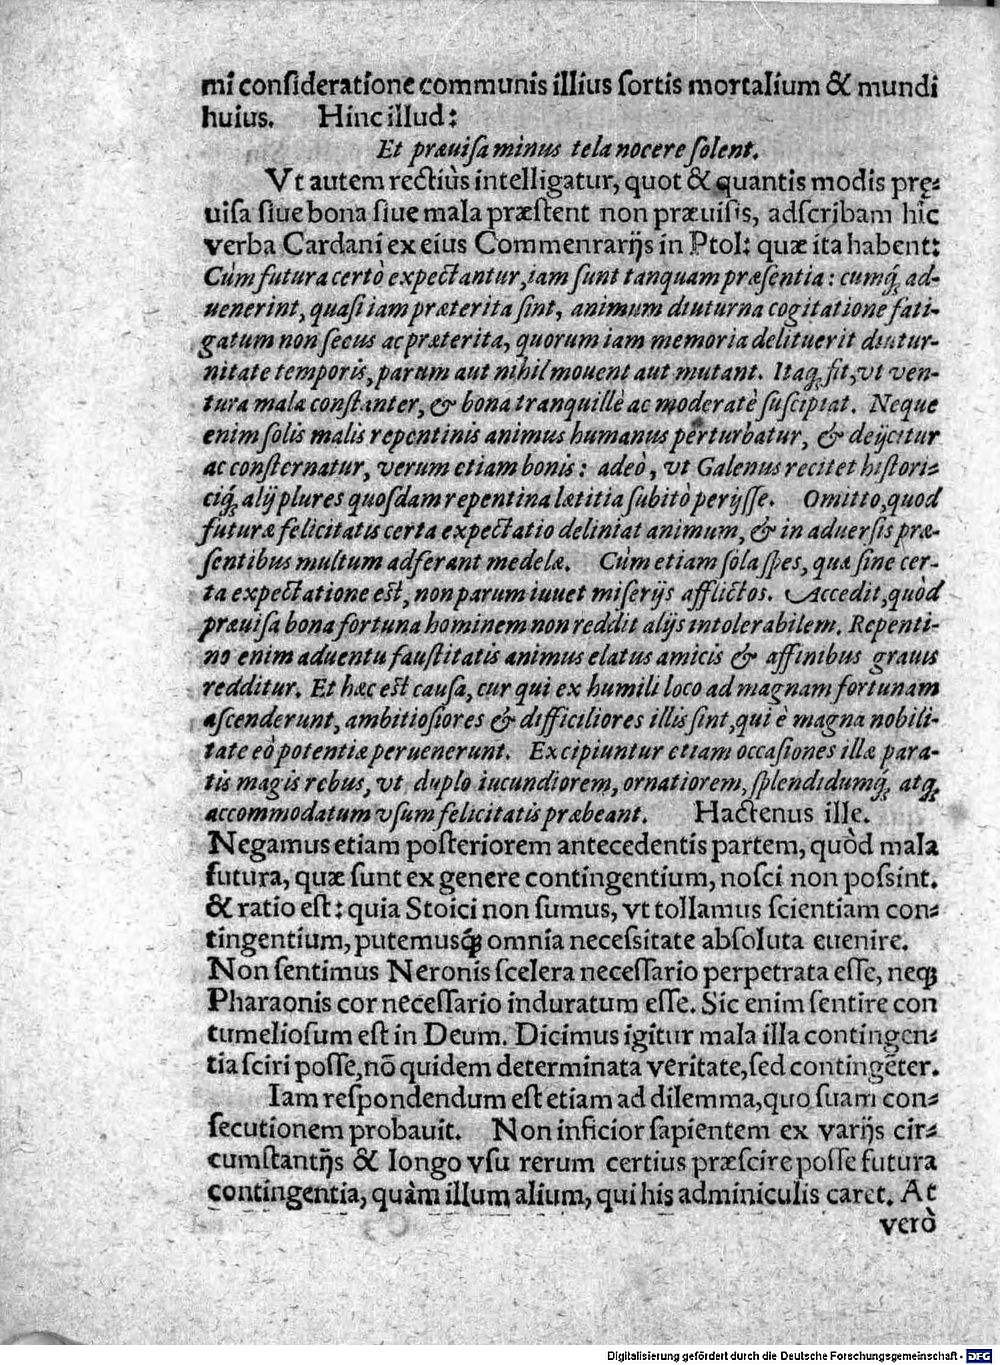 mi conſideratione communis illius ſortis mortalium & mundi
huius. Hinc illud:
Et præuiſa minus tela nocere ſolent.
Vt autem rectiùs intelligatur, quot & quantis modis prę⸗
uiſa ſiue bona ſiue mala præſtent non præuiſis, adſcribam hîc
verba Cardani ex eius Commenrarijs in Ptol: quæ ita habent:
Cùm futura certò expectantur, iam ſunt tanquam præſentia: cumq́; ad-
uenerint, quaſi iam præterita ſint, animum diuturna cogitatione fati-
gatum non ſecus ac præterita, quorum iam memoria delituerit diutur-
nitate temporis, parum aut nihil mouent aut mutant. Itaq; fit, vt ven-
tura mala conſtanter, & bona tranquillè ac moderatè ſuſcipiat. Neque
enim ſolis malis repentinis animus humanus perturbatur, & deijcitur
ac conſternatur, verum etiam bonis: adeò, vt Galenus recitet hiſtori⸗
ciq́; alij plures quoſdam repentina lætitia ſubitò perijſſe. Omitto, quod
futuræ felicitatis certa expectatio deliniat animum, & in aduerſis præ-
ſentibus multum adferant medelæ. Cùm etiam ſola ſpes, quæ ſine cer-
ta expectatione eſt, non parum iuuet miſerijs afflictos. Accedit, quòd
præuiſa bona fortuna hominem non reddit alijs intolerabilem. Repenti-
no enim aduentu fauſtitatis animus elatus amicis & affinibus grauis
redditur. Et hæc eſt cauſa, cur qui ex humili loco ad magnam fortunam
aſcenderunt, ambitioſiores & difficiliores illis ſint, qui è magna nobili-
tate eò potentiæ peruenerunt. Excipiuntur etiam occaſiones illæ para-
tis magis rebus, vt duplo iucundiorem, ornatiorem, ſplendidumq́;, atq;
accommodatum vſum felicitatis præbeant. Hactenus ille.
Negamus etiam poſteriorem antecedentis partem, quòd mala
futura, quæ ſunt ex genere contingentium, noſci non poſsint.
& ratio eſt: quia Stoici non ſumus, vt tollamus ſcientiam con⸗
tingentium, putemusq́; omnia neceſsitate abſoluta euenire.
Non ſentimus Neronis ſcelera neceſſario perpetrata eſſe, neq;
Pharaonis cor neceſſario induratum eſſe. Sic enim ſentire con
tumelioſum eſt in Deum. Dicimus igitur mala illa contingen⸗
tia ſciri poſſe, nõ quidem determinata veritate, ſed contingẽter.
Iam reſpondendum eſt etiam ad dilemma, quo ſuam con⸗
ſecutionem probauit. Non inficior ſapientem ex varijs cir⸗
cumſtantijs & longo vſu rerum certius præſcire poſſe futura
contingentia, quàm illum alium, qui his adminiculis caret. At
verò
Digitalisierung gefördert durch die Deutsche Forschungsgemeinschaft - DFG